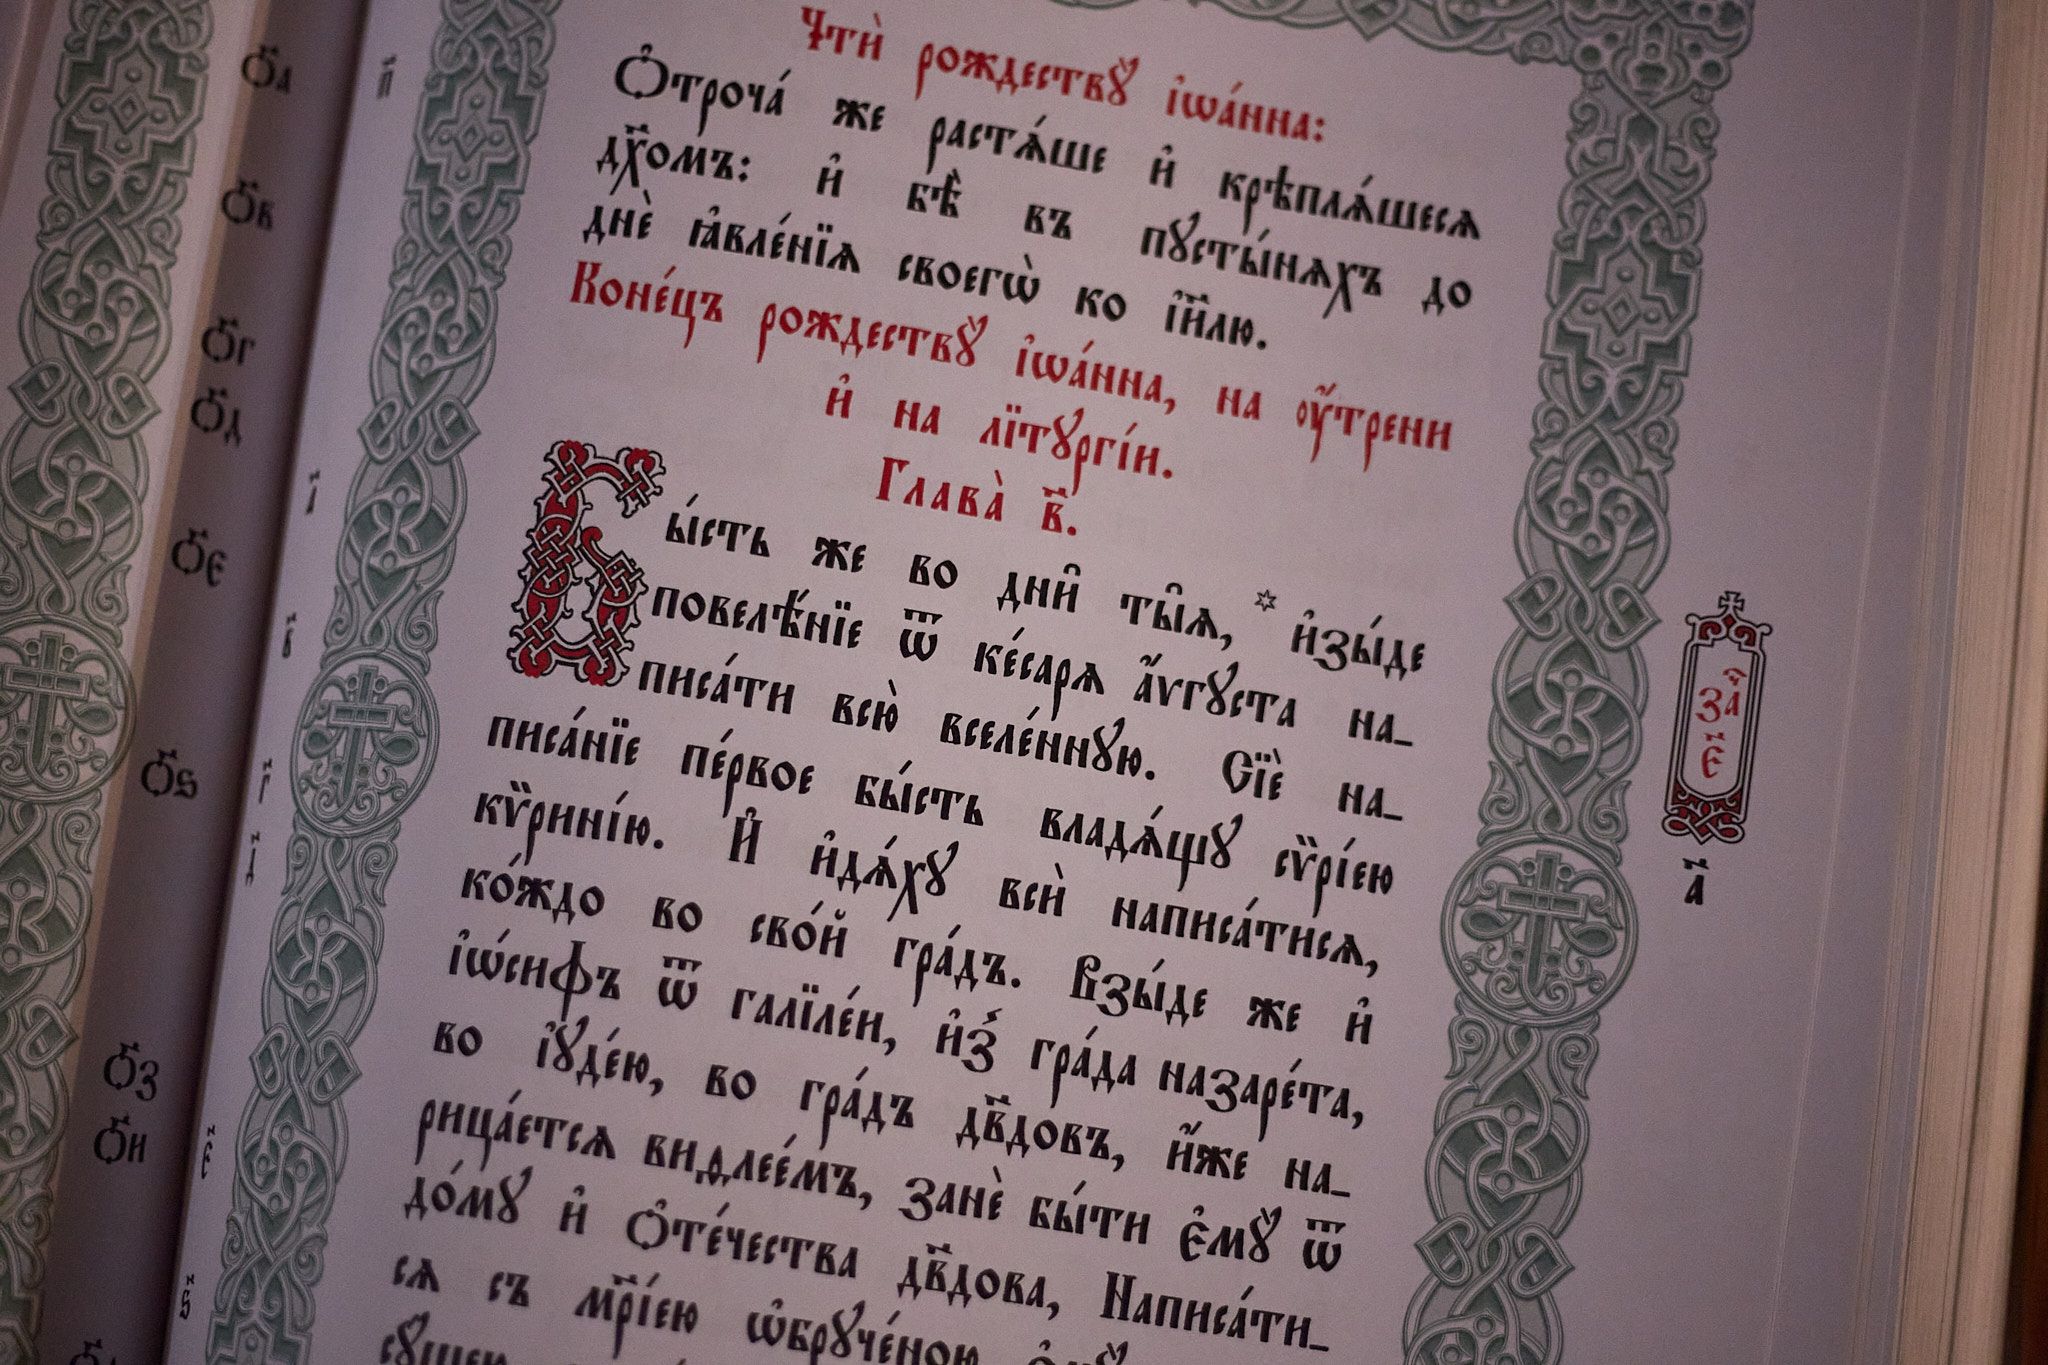 Ѻ҃а
Ѻ҃в
Ѻ҃г
Ѻ҃д
Ѻ҃є
Ѻ҃ѕ
Ѻ҃з
Ѻ҃и
п҃
і҃
в҃
г҃
д҃
є҃
ѕ҃
Чтѝ рождествꙋ̀ і҆ѡа́нна:
Ѻ҆троча́ же растѧ́ше и҆ крѣплѧ́шесѧ
дх҃омъ: и҆ бѣ̀ въ пꙋсты́нѧхъ до
днѐ ꙗ҆вле́нїѧ своегѡ̀ ко і҆и҃лю.
Коне́цъ рождествꙋ̀ і҆ѡа́нна, на ᲂу҆́трени
и҆ на лїтꙋргі́и.
Глава̀ в҃.
Бы́сть же во дни̑ ты̑ѧ, * и҆зы́де
повелѣ́нїе ѿ ке́сарѧ а҆́ѵгꙋста на_
писа́ти всю̀ вселе́ннꙋю. Сїѐ на_
писа́нїе пе́рвое бы́сть владѧ́щꙋ сѷрі́ею
кѷрині́ю. И҆ и҆дѧ́хꙋ всѝ написа́тисѧ,
ко́ждо во сво́й гра́дъ. Взы́де же и҆
і҆ѡ́сифъ ѿ галїле́и, и҆з̾ гра́да назаре́та,
во і҆ꙋде́ю, во гра́дъ дв҃довъ, и҆́же на_
рица́етсѧ виѳлее́мъ, занѐ бы́ти є҆мꙋ̀ ѿ
до́мꙋ и҆ ѻ҆те́чества дв҃дова, Написа́ти_
сѧ съ мр҃і́ею ѡ҆брꙋче́ною є҆мꙋ̀
за҄
є҃
а҃